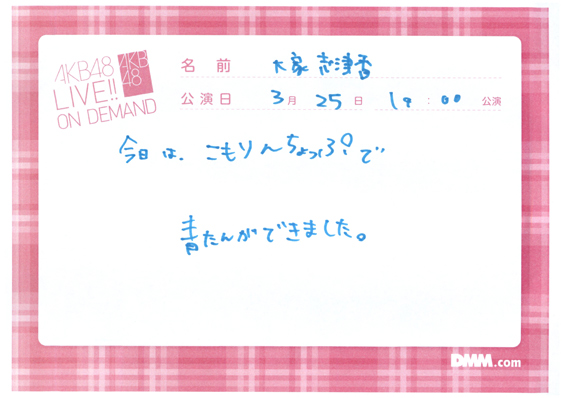 AKB48
LIVE!!
ON DEMAND
AKB
48
名前 大家志津香
公演日 3月25日 19:00 公演
今日は、こもりんちょっろ?で
青たんができました。
DMM.com